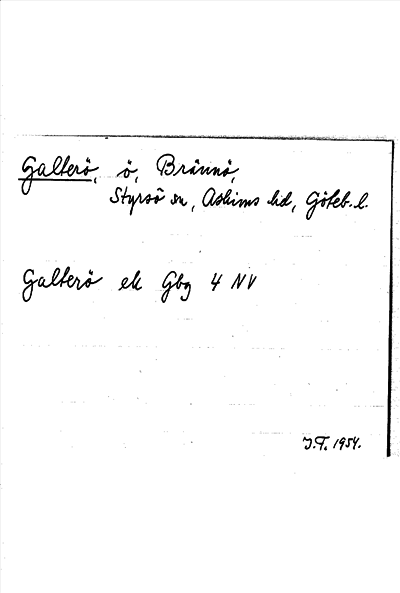 Galterö, ö, Brännö,
Styrsö sn, Askims hd, Göteb. l.
Galterö ek Gbg 4 NV
J.F. 1954.